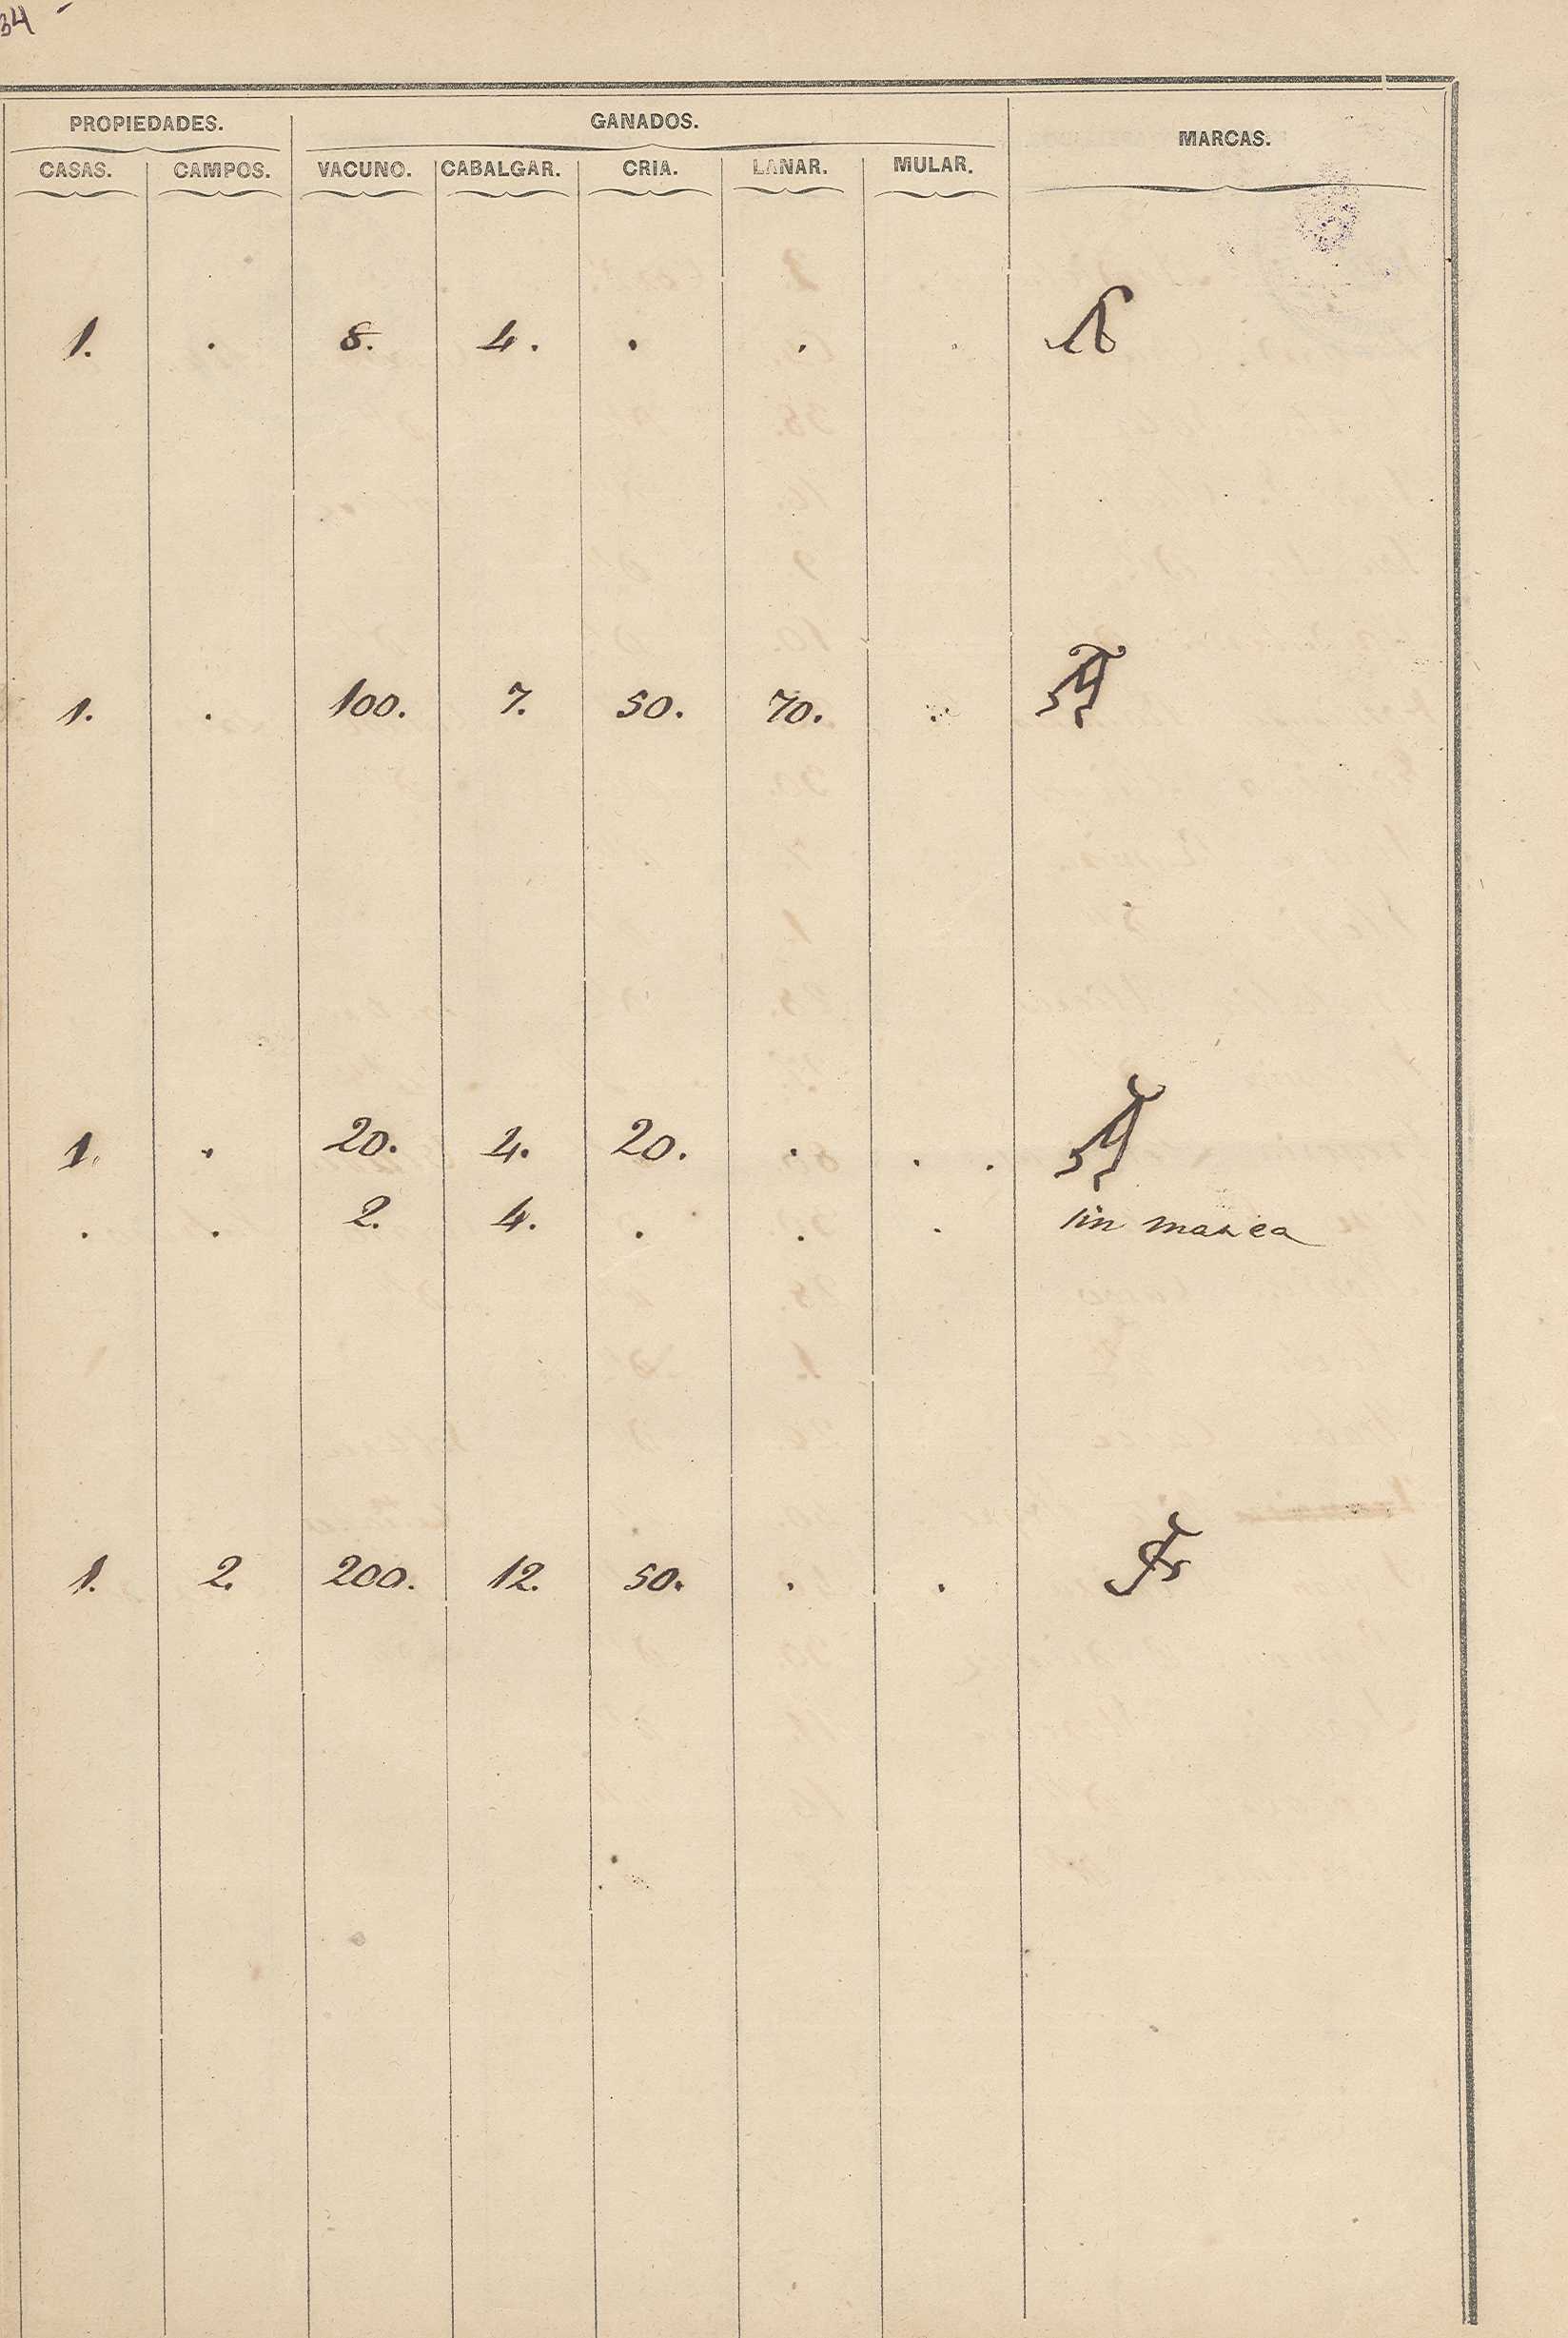 34
PROPIEDADES. GANADOS. MARCAS.
CASAS. CAMPOS. VACUNO. CABALGAR. CRIA. LANAR. MULAR.
1. . 8. 4. . . .
1. . 100. 7. 50. 70. .
1. . 20. 4. 20. . . .
. . 2. 4. . . . sin marca
1. 2. 200. 12. 50. . .